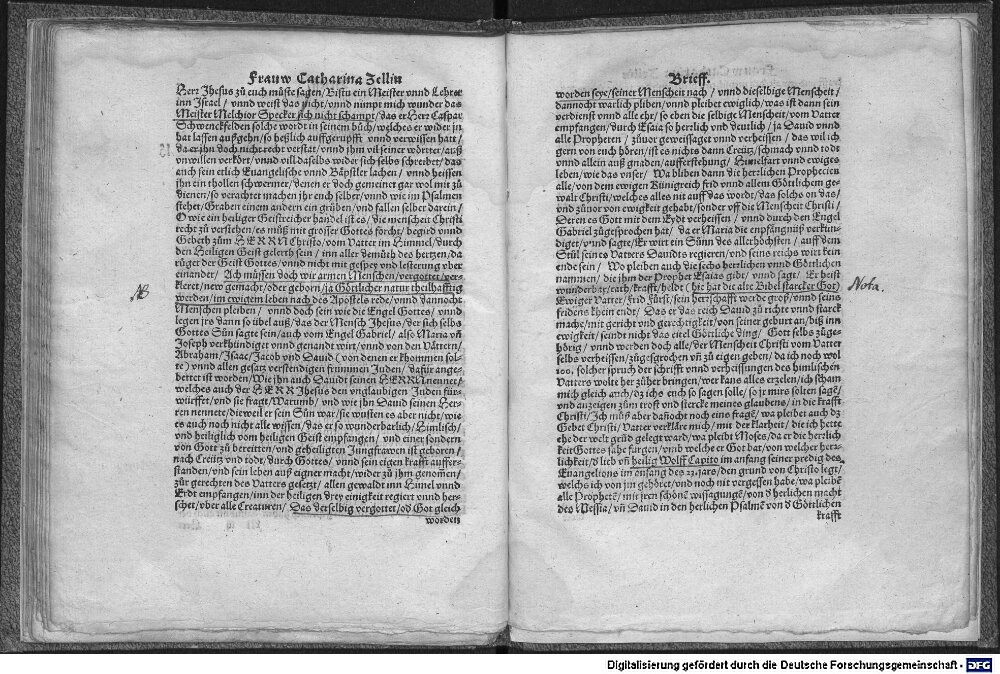 Frauw Catharina Zellin
Herr Jhesus zů euch můste sagen/Bistu ein Meister vnnd Lehrer
inn Israel / vnnd weist das nicht/vnnd nimpt mich wunder das
Meister Melchior Specker sich nicht schampt/das er Herr Caspar
Schwenckfelden solche wordt in seinem bůch/welches er wider jn
hat lassen außgehn/so heßlich auffgerupfft vnnd verwissen hatt/
da er jhn doch nicht recht verstat/vnnd jhm vil seiner wörtter/auß
onwillen verkört/vnnd vill daselbs wider sich selbs schreibet/das
auch sein etlich Euangelische vnnd Bäpstler lachen/ vnnd heissen
jhn ein thollen schwermer/denen er doch gemeinet gar wol mit zů
dienen/so verachtet machen jhr euch selber/vnnd wie im Psalmen
stehet/Graben einem andern ein grůben/vnd fallen selber darein/
O wie ein heiliger Geistreicher handel ist es/die menscheit Christi
recht zů verstehen/es můß mit grosser Gottes forcht/begird vnnd
Gebeth zům HERRN Christo/vom Vatter im Himmel/durch
den Heiligen Geist gelerth sein/inn aller demůth des hertzen/da
růget der Geist Gottes/vnnd nicht mit gespey vnd lesterung vber
einander/ Ach müssen doch wir armen Menschen/vergottet/ver-
kleret/new gemacht/oder geborn/ja Göttlicher natur theilhafftig
werden/im ewigem leben nach des Apostels rede/vnnd dannocht
Menschen pleiben / vnnd doch sein wie die Engel Gottes / vnnd
legen jrs dann so übel auß/das der Mensch Jhesus/der sich selbs
Gottes Sůn sagte sein/auch vom Engel Gabriel/also Maria vñ
Joseph verkhündiget vnnd genandt wirt/vnnd von den Vättern/
Abraham/Isaac/Jacob vnd David (von denen er khommen sol-
te) vnnd allen gesatz verstendigen frümmen Juden/ dafür ange-
bettet ist worden/Wie jhn auch Davidt seinen HERRN nennet/
welches auch der HERR Jhesus den vnglaubigen Juden für-
würffet/vnd sie fragt/Warumb/ vnd wie jhn David seinen Her-
ren nennete/dieweil er sein Sůn war/sie wusten es aber nicht/wie
es auch noch nicht alle wissen/das er so wunderbarlich/Himlisch/
vnd heiliglich vom heiligen Geist empfangen/ vnd einer sondern
von Gott zů bereitten/vnd geheiligten Jungfrawen ist geboren/
nach Creütz vnd todt/durch Gottes / vnnd sein eigen krafft auffer-
standen/vnd sein leben auß eigner macht/wider zů jhm genomẽ/
zůr gerechten des Vatters gesetzt/ allen gewaldt inn Himel vnnd
Erdt empfangen/inn der heiligen drey einigkeit regiert vnnd her-
schet/vber alle Creaturen/ Das derselbig vergottet/od Got gleich
worden
NB
Brieff.
worden seye/seiner Menscheit nach / vnnd dieselbige Menscheit/
dannocht warlich pliben/vnnd pleibet ewiglich/was ist dann sein
verdienst vnnd alle ehr/so eben die selbige Menscheit/vom Vatter
empfangen/durch Esaia so herrlich vnd deutlich/ja David vnnd
alle Propheten / zůuor geweissaget vnd verheissen/ das wil ich
gern von euch hören/ist es nichts dann Creütz/schmach vnnd todt
vnnd allein auß gnaden/aufferstehung/ Himelfart vnnd ewiges
leben/wie das vnser/ Wa bliben dann die herrlichen Prophecien
alle/von dem ewigen Künigreich frid vnnd allem Göttlichem ge-
walt Christi/welches alles nit auff das wordt/das solchs on das/
vnd zůuor von ewigkeit gehabt/sonder vff die Menscheit Christi/
Deren es Gott mit dem Eydt verheissen / vnnd durch den Engel
Gabriel zůgesprochen hat / da er Maria die empfengnüß verkün-
diget/vnnd sagte/Er wirt ein Sünn des allerhöchsten/ auff dem
Stůl seines Vatters Davidts regieren/vnd seins reichs wirt kein
ende sein/ Wo pleiben auch die sechs herlichen vnnd Göttlichen
nammen/ die jhm der Prophet Esaias gibt/ vnnd sagt/ Er heist
wunderbar/rath/krafft/heldt (hie hat die alte Bibel starcker Got)
Ewiger Vatter/Frid Fürst/sein herrschafft werde groß/vnnd seins
fridens khein endt/ Das er das reich David zů richt vnnd starck
mache/mit gericht vnd gerechtigkeit/von seiner geburt an/biß inn
ewigkeit/seindt nicht das eitel Göttliche ding/ Gott selbs zůge-
hörig/ vnnd werden doch alle/der Menscheit Christi vom Vatter
selbs verheissen/zůgesprochen vñ zů eigen geben/da ich noch wol
100. solcher spruch der schrifft vnnd verheissungen des himlischen
Vatters wolte her züher bringen/wer kans alles erzelen/ich scham
mich gleich auch/dz ichs euch so sagen solle/so jr mirs solten sagẽ/
vnd anzeigen zům trost vnd stercke meines glaubens/in die krafft
Christi/Ich můß aber dañocht noch eins fragẽ/wa pleibet auch dz
Gebet Christi/Vatter verkläre mich/mit der klarheit/die ich hette
ehe der welt grůd gelegt ward/wa pleibt Moses/da er die herlich
keit Gottes sahe fürgen/vnd welche er Got bat/von welcher herr-
lichkeit/d lieb vñ heilig Wolff Capito im anfang seiner predig des
Euangelions im anfang des 23. jars/den grund von Christo legt/
welchs ich von jm gehöret/vnd noch nit vergessen habe/wa pleibẽ
alle Prophetẽ/mit jren schönẽ wissagungẽ/von d herlichen macht
des Messia/vñ David in den herlichen Psalmẽ von d Göttlichen
krafft
Nota.
Digitalisierung gefördert durch die Deutsche Forschungsgemeinschaft - DFG